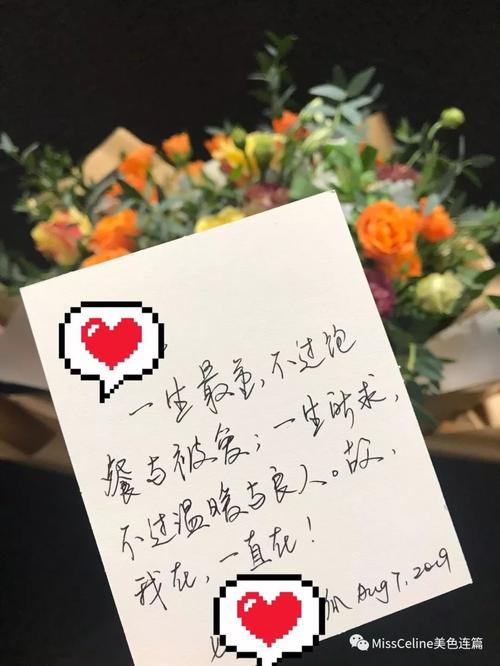 一生最重,不过饱
餐与被爱;一生所求,
不过温暖与良人。故,
我在,一直在!
Aug 7, 2019
MissCeline美色连篇